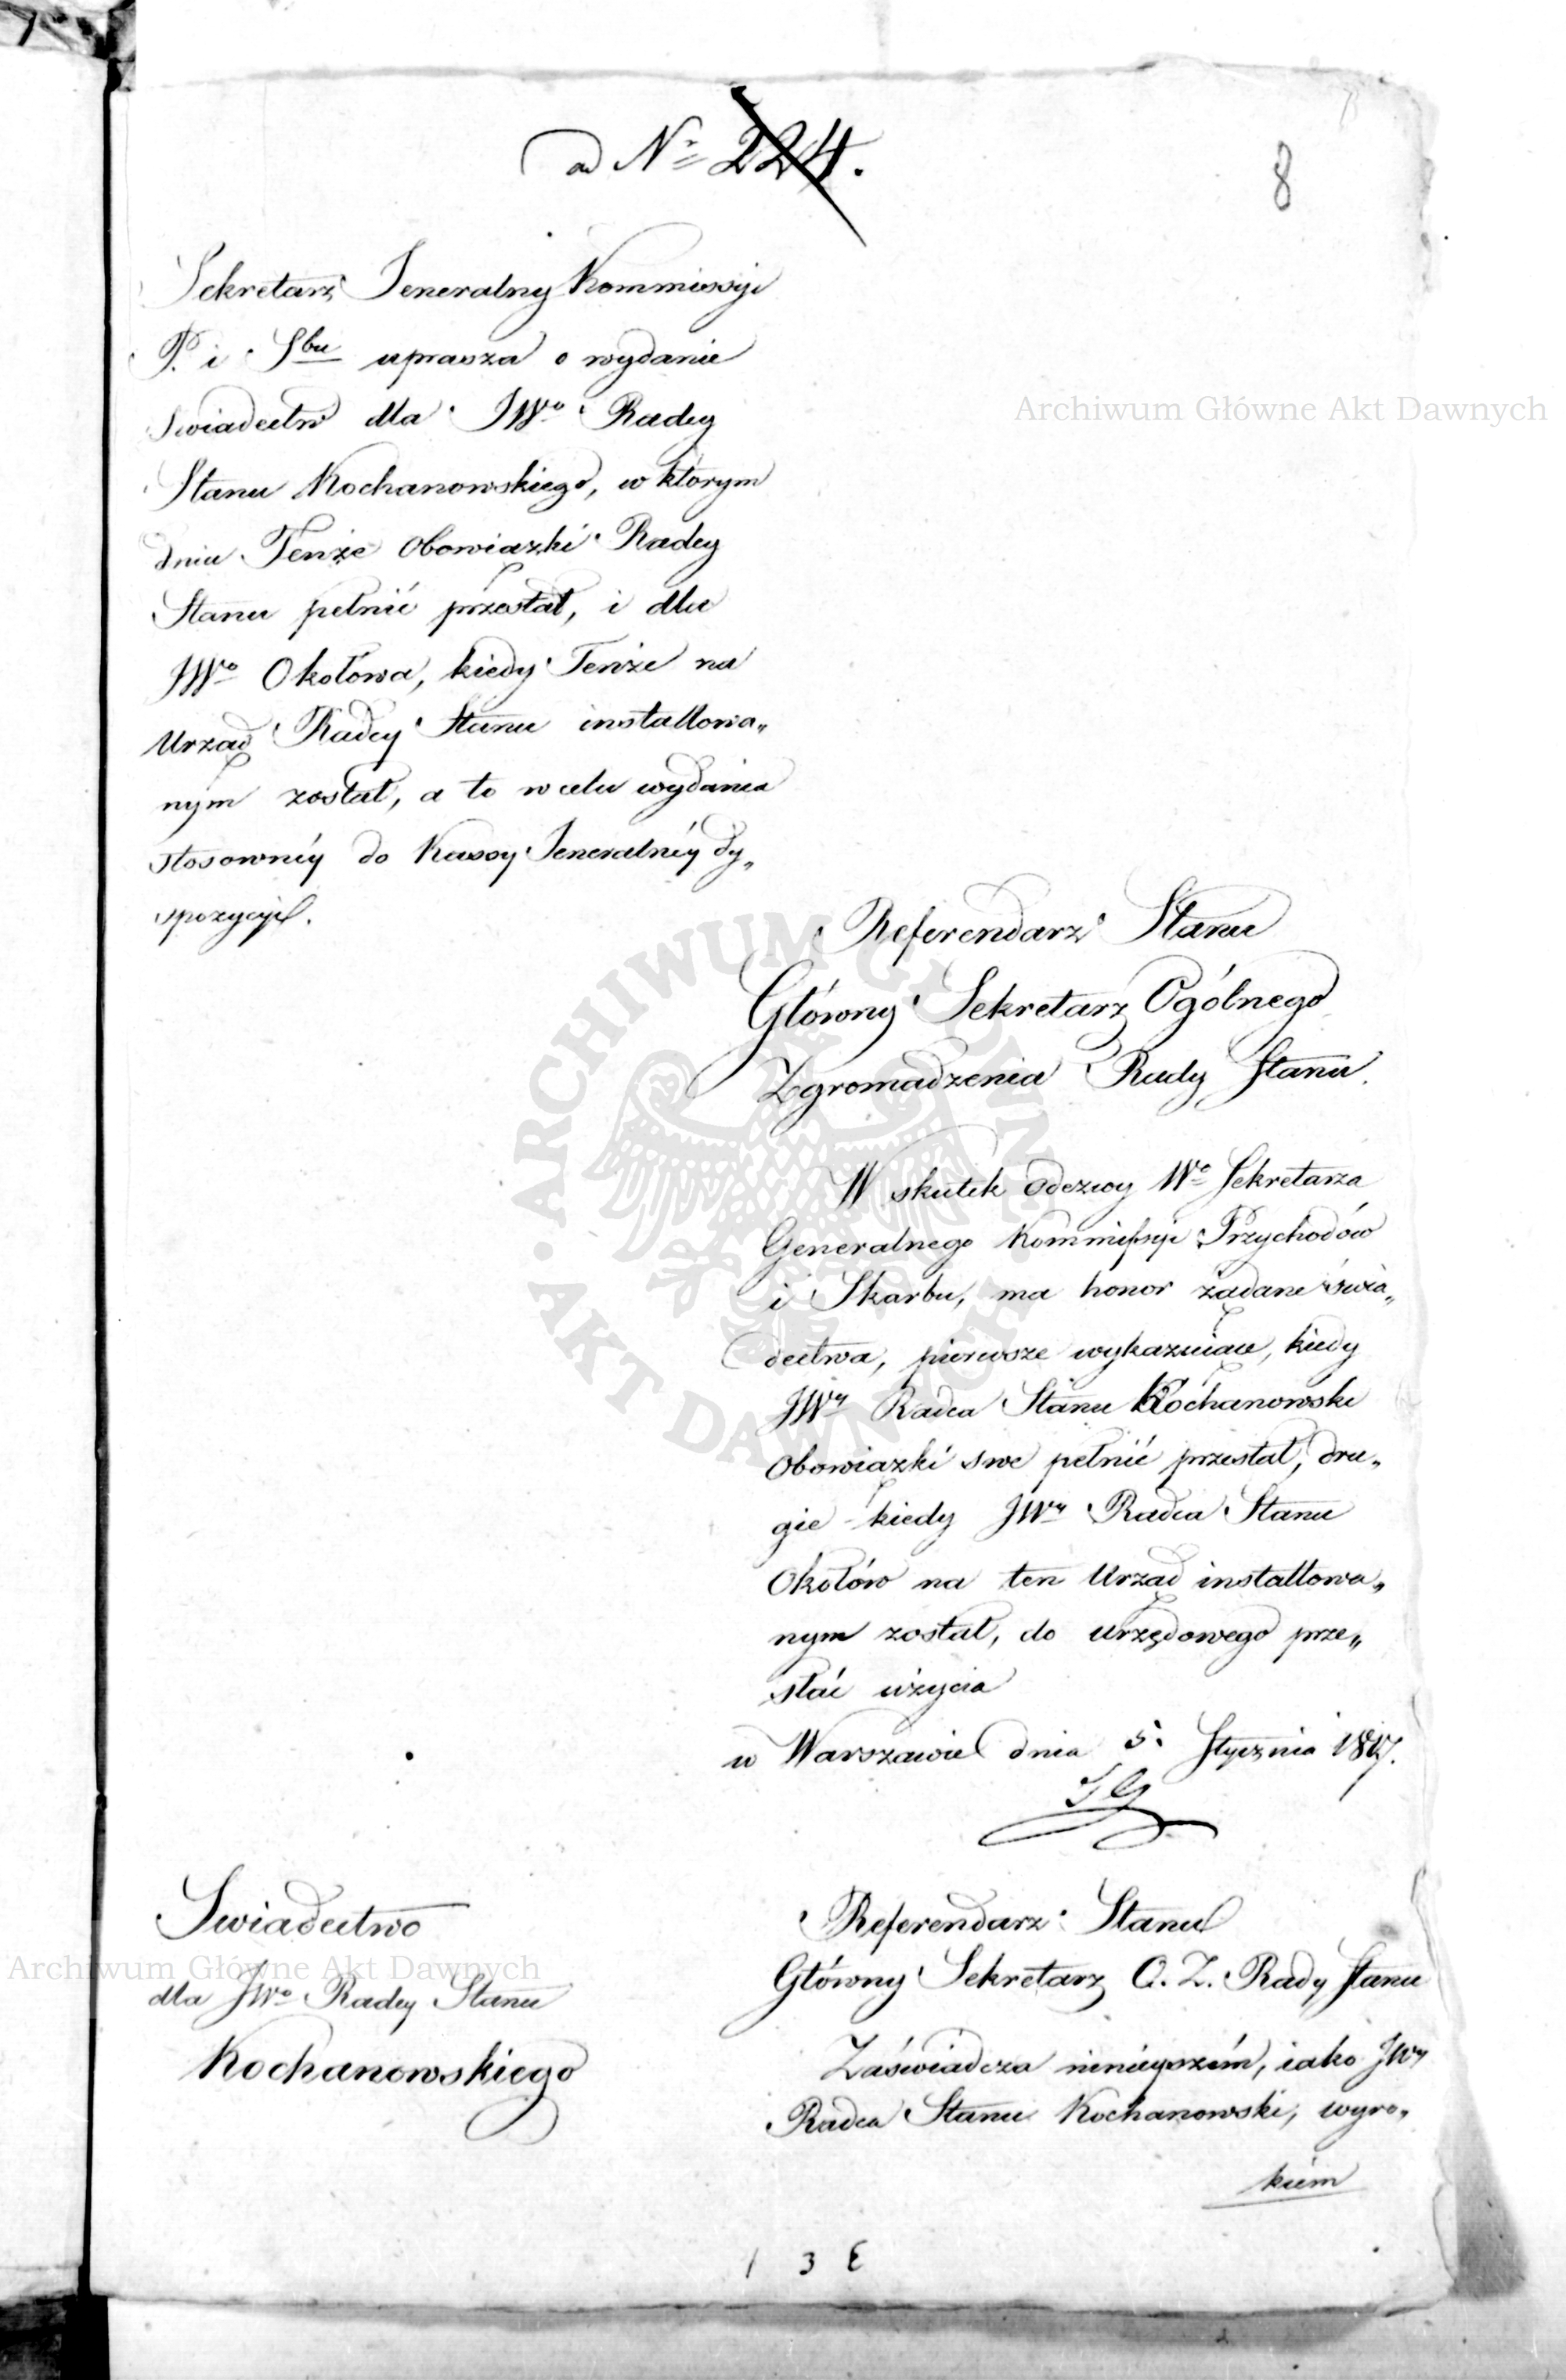 ad Nr 224.
8
Sekretarz Jeneralny Kommissyi
P. i Sbu uprasza o wydanie
świadectw dla JWo Radcy
Stanu Kochanowskiego, w którym
dniu Tenże obowiązki Radcy
Stanu pełnić przestał, i dla
JWo Okołowa, kiedy Tenże na
Urząd Radcy Stanu installowa„
nym został, a to w celu wydania
stosownéy do Kassy Jeneralnéy dy„
spozycyi.
Referendarz Stanu
Główny Sekretarz Ogólnego
Zgromadzenia Rady Stanu.
W skutek odezwy Wo Sekretarza
Generalnego Kommissyi Przychodów
i Skarbu, ma honor żądane świa„
dectwa, pierwsze wykazuiące, kiedy
JWy Radca Stanu Kochanowski
obowiązki swe pełnić przestał, dru„
gie kiedy JWy Radca Stanu
Okołów na ten Urząd installowa„
nym został, do urzędowego prze„
słać użycia
w Warszawie dnia 5. Stycznia 1817.
Świadectwo
dla JWo Radcy Stanu
Kochanowskiego
Referendarz Stanu
Główny Sekretarz O. Z. Rady Stanu
Zaświadcza ninieyszém, iako JWy
Radca Stanu Kochanowski, wyro„
kiem
Archiwum Główne Akt Dawnych
Archiwum Główne Akt Dawnych
ARCHIWUM GŁÓWNE AKT DAWNYCH